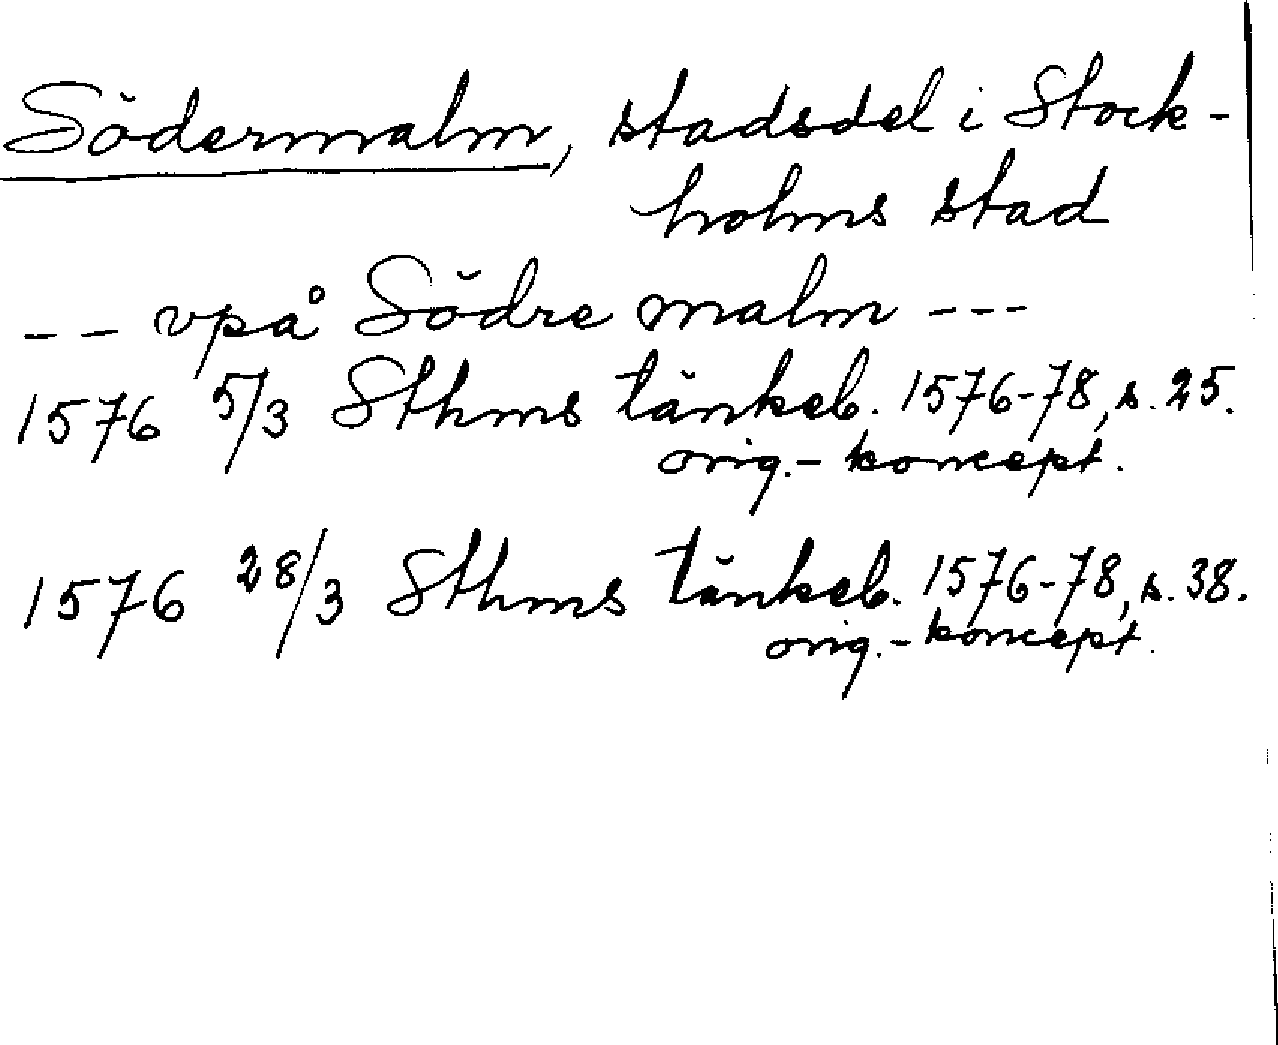 Södermalm, stadsdel i Stock-
holms stad
-- vpå Södre malm ---
1576 5/3 Sthms tänkeb. 1576-78, s. 25.
orig.- koncept.
1576 28/3 Sthms tänkeb. 1576-78, s. 38.
orig.- koncept.